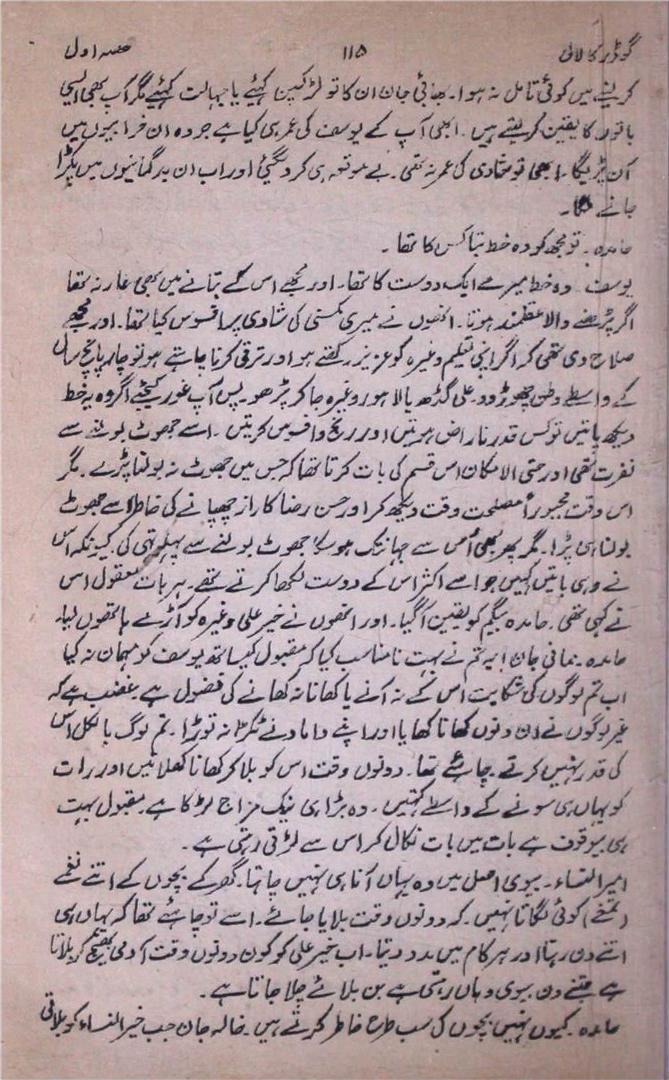 گودڑ کا لال ۱۱۵ حصہ اول
کرلینے میں کوئی تامل نہ ہوا۔ بھائی جان ان کا تو لڑکپن کہیئے یا جہالت کہیئے مگر آپ بھی ایسی
باتوں کا یقین کرلیتے ہیں۔ ابھی آپ کے یوسف کی عمر ہی کیا ہے جو وہ ان خرابیوں میں
آن پڑیگا۔ ابھی تو شادی کی عمر نہ تھی۔ بے موقعہ ہی کردیگئی اور اب ان بدگمانیوں میں پکڑا
جانے لگا۔
حامدہ۔ تو مجھ کو وہ خط بتا کس کا تھا۔
یوسف۔ وہ خط میرے ایک دوست کا تھا۔ اور مجھے اس کے بتانے میں بھی عار نہ تھا
اگر پڑھنے والا عقلمند ہوتا۔ انھوں نے میری کمسنی کی شادی پر افسوس کیا تھا۔ اور مجھے
صلاح دی تھی کہ اگر اپنی تعلیم وغیرہ کو عزیز رکھتے ہو اور ترقی کرنا چاہتے ہو تو چار پانچ سال
کے واسطے وطن چھوڑ دو۔ علی گڈھ یا لاہور وغیرہ جا کر پڑھو۔ پس آپ غور کیجئے اگر وہ یہ خط
دیکھ پاتیں تو کس قدر ناراض ہوتیں اور رنج و افسوس کرتیں۔ اسے جھوٹ بولنے سے
نفرت تھی اور حتی الامکان اس قسم کی بات کرتا تھا کہ جس میں جھوٹ نہ بولنا پڑے۔ مگر
اس وقت مجبوراً مصلحت وقت دیکھ کر اور حسن رضا کا راز چھپانے کی خاطر اسے جھوٹ
بولنا ہی پڑا۔ مگر پھر بھی اُس سے جہانتک ہوسکا جھوٹ بولنے سے پہلو تہی کی۔ کیونکہ اس
نے وہی باتیں کہیں جو اسے اکثر اس کے دوست لکھا کرتے تھے۔ ہر بات معقول اس
نے کہی تھی۔ حامدہ بیگم کو یقین آگیا۔ اور انھوں نے خیر علی وغیرہ کو آڑے ہاتھوں لیا۔
حامدہ۔ ممانی جان! یہ تم نے بہت نامناسب کیا کہ مقبول کیساتھ یوسف کو مہمان نہ کیا
اب تم لوگوں کی شکایت اس کے نہ آنے یا کھانا نہ کھانے کی فضول ہے۔ غضب ہے کہ
غیر لوگوں نے ان دنوں کھانا کھایا اور اپنے داماد نے ٹکڑا نہ توڑا۔ تم لوگ بالکل اس
کی قدر نہیں کرتے۔ چاہئے تھا۔ دونوں وقت اس کو بلا کر کھانا کھلاتیں اور رات
کو یہاں ہی سونے کے واسطے کہتیں۔ وہ بڑا ہی نیک مزاج لڑکا ہے۔ مقبول بہت
ہی بیوقوف ہے بات میں بات نکال کر اس سے لڑتی رہتی ہے۔
امیر النساء۔ بیوی اصل میں وہ یہاں آنا ہی نہیں چاہتا۔ گھر کے بچوں کے اتنے نغمے
(تمغے) کوئی لگاتا نہیں۔ کہ دونوں وقت بلایا جائے۔ اسے تو چاہئے تھا کہ یہاں ہی
اتنے دن رہتا اور ہر کام میں مدد دیتا۔ اب خیر علی کو کون دونوں وقت آدمی بھیج کر بلاتا
ہے جتنے دن بیوی وہاں رہتی ہے بن بلائے چلا جاتا ہے۔
حامدہ۔ کیوں نہیں بچوں کی سب طرح خاطر کرتے ہیں۔ خالہ جان جب خیر النساء کو بلاتی